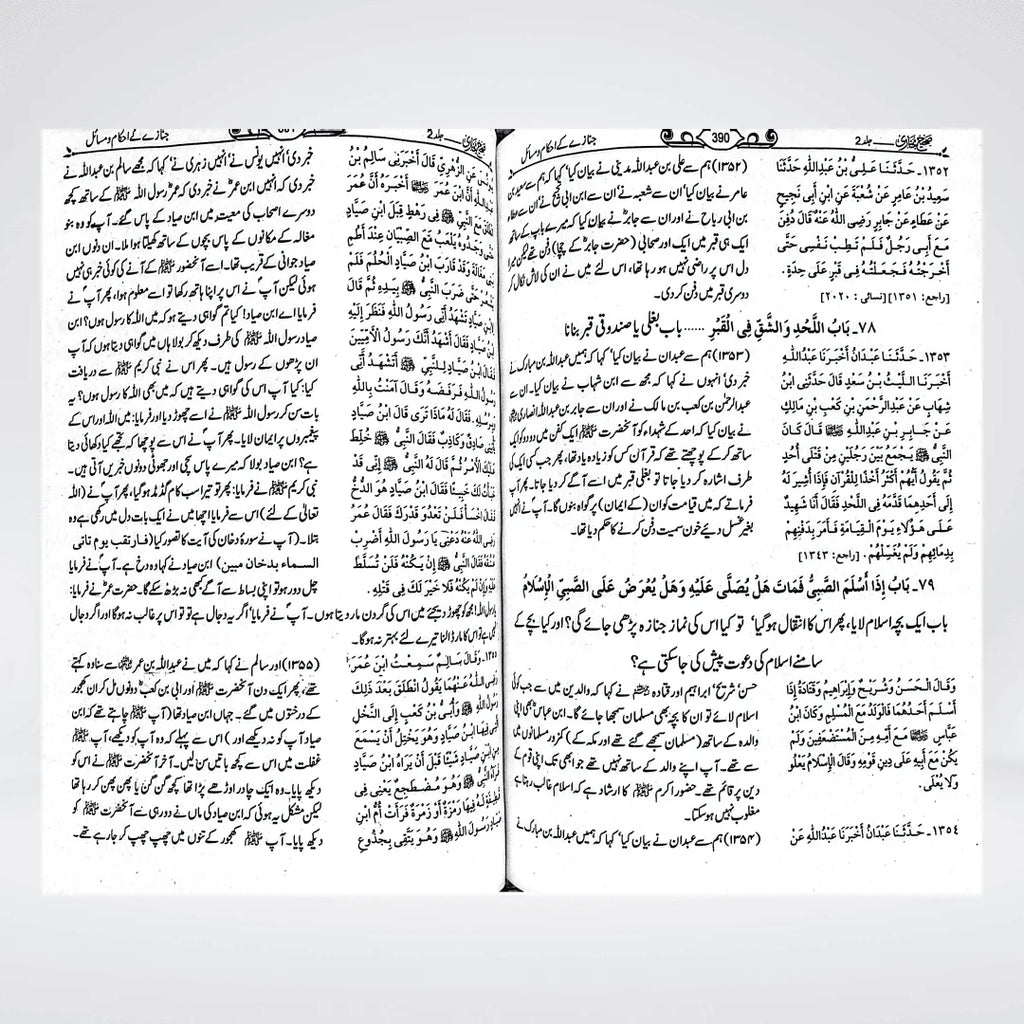 صحیح بخاری جلد 2
390
جنازے کے احکام و مسائل
١٣٥٢۔ حَدَّثَنَا عَلِيُّ بْنُ عَبْدِاللَّهِ حَدَّثَنَا
سَعِيدُ بْنُ عَامِرٍ عَنْ شُعْبَةَ عَنِ ابْنِ أَبِي نَجِيحٍ
عَنْ عَطَاءٍ عَنْ جَابِرٍ رَضِيَ اللَّهُ عَنْهُ قَالَ دُفِنَ
مَعَ أَبِي رَجُلٌ فَلَمْ تَطِبْ نَفْسِي حَتَّى
أَخْرَجْتُهُ فَجَعَلْتُهُ فِي قَبْرٍ عَلَى حِدَةٍ.
[راجع: ١٣٥١] [نسائی: ٢٠٢٠]
(۱۳۵۲) ہم سے علی بن عبداللہ مدینی نے بیان کیا' کہا کہ ہم سے سعید بن
عامر نے بیان کیا' ان سے شعبہ نے' ان سے ابن ابی نجیح نے' ان سے عطاء
بن ابی رباح نے اور ان سے جابرؓ نے بیان کیا کہ میرے باپ کے ساتھ
ایک ہی قبر میں ایک اور صحابی (حضرت جابرؓ کے چچا) دفن تھے لیکن میرا
دل اس پر راضی نہیں ہو رہا تھا، اس لئے میں نے ان کی لاش نکال کر
دوسری قبر میں دفن کر دی۔
٧٨۔ بَابُ اللَّحْدِ وَالشَّقِّ فِي الْقَبْرِ ..... باب بغلی یا صندوقی قبر بنانا
١٣٥٣۔ حَدَّثَنَا عَبْدَانُ أَخْبَرَنَا عَبْدُاللَّهِ
أَخْبَرَنَا اللَّيْثُ بْنُ سَعْدٍ قَالَ حَدَّثَنِي ابْنُ
شِهَابٍ عَنْ عَبْدِالرَّحْمَنِ بْنِ كَعْبِ بْنِ مَالِكٍ
عَنْ جَابِرِ بْنِ عَبْدِاللَّهِ ؓ قَالَ كَانَ
النَّبِيُّ ﷺ يَجْمَعُ بَيْنَ رَجُلَيْنِ مِنْ قَتْلَى أُحُدٍ
ثُمَّ يَقُولُ أَيُّهُمْ أَكْثَرُ أَخْذًا لِلْقُرْآنِ فَإِذَا أُشِيرَ لَهُ
إِلَى أَحَدِهِمَا قَدَّمَهُ فِي اللَّحْدِ فَقَالَ أَنَا شَهِيدٌ
عَلَى هَؤُلَاءِ يَوْمَ الْقِيَامَةِ فَأَمَرَ بِدَفْنِهِمْ
بِدِمَائِهِمْ وَلَمْ يُغَسِّلْهُمْ. [راجع: ١٣٤٣]
(۱۳۵۳) ہم سے عبدان نے بیان کیا' کہا کہ ہمیں عبداللہ بن مبارک نے
خبر دی' انہوں نے کہا کہ مجھ سے ابن شہاب نے بیان کیا۔ ان سے
عبدالرحمٰن بن کعب بن مالک نے اور ان سے جابر بن عبداللہ انصاری
نے بیان کیا کہ احد کے شہداء کو آنحضور ﷺ ایک کفن میں دو دو کو ایک
ساتھ کر کے پوچھتے تھے کہ قرآن کس کو زیادہ یاد تھا، پھر جب کسی ایک کی
طرف اشارہ کر دیا جاتا تو بغلی قبر میں اسے آگے کر دیا جاتا۔ پھر آپ
فرماتے کہ میں قیامت کو ان (کے ایمان) پر گواہ بنوں گا۔ آپؐ نے انہیں
بغیر غسل دیئے خون سمیت دفن کرنے کا حکم دیا تھا۔
٧٩۔ بَابُ إِذَا أَسْلَمَ الصَّبِيُّ فَمَاتَ هَلْ يُصَلَّى عَلَيْهِ وَهَلْ يُعْرَضُ عَلَى الصَّبِيِّ الْإِسْلَامُ
باب ایک بچہ اسلام لایا، پھر اس کا انتقال ہو گیا' تو کیا اس کی نماز جنازہ پڑھی جائے گی؟ اور کیا بچے کے
سامنے اسلام کی دعوت پیش کی جا سکتی ہے؟
وَقَالَ الْحَسَنُ وَشُرَيْحٌ وَإِبْرَاهِيمُ وَقَتَادَةُ إِذَا
أَسْلَمَ أَحَدُهُمَا فَالْوَلَدُ مَعَ الْمُسْلِمِ وَكَانَ ابْنُ
عَبَّاسٍ ؓ مَعَ أُمِّهِ مِنَ الْمُسْتَضْعَفِينَ وَلَمْ
يَكُنْ مَعَ أَبِيهِ عَلَى دِينِ قَوْمِهِ وَقَالَ الْإِسْلَامُ يَعْلُو
وَلَا يُعْلَى.
حسن' شریح' ابراہیم اور قتادہ نے کہا کہ والدین میں سے جب کوئی
اسلام لائے تو ان کا بچہ بھی مسلمان سمجھا جائے گا۔ ابن عباسؓ بھی اپنی
والدہ کے ساتھ (مسلمان سمجھے گئے تھے اور مکہ کے) کمزور مسلمانوں میں
سے تھے۔ آپ اپنے والد کے ساتھ نہیں تھے جو ابھی تک اپنی قوم کے
دین پر قائم تھے۔ حضور اکرم ﷺ کا ارشاد ہے کہ اسلام غالب رہتا ہے
مغلوب نہیں ہو سکتا۔
١٣٥٤۔ حَدَّثَنَا عَبْدَانُ أَخْبَرَنَا عَبْدُاللَّهِ عَنْ
(۱۳۵۴) ہم سے عبدان نے بیان کیا' کہا کہ ہمیں عبداللہ بن مبارک نے
صحیح بخاری جلد 2
جنازے کے احکام و مسائل
يُونُسَ عَنِ الزُّهْرِيِّ قَالَ أَخْبَرَنِي سَالِمُ بْنُ
عَبْدِاللَّهِ أَنَّ ابْنَ عُمَرَ ؓ أَخْبَرَهُ أَنَّ عُمَرَ
انْطَلَقَ مَعَ النَّبِيِّ ﷺ فِي رَهْطٍ قِبَلَ ابْنِ صَيَّادٍ
حَتَّى وَجَدُوهُ يَلْعَبُ مَعَ الصِّبْيَانِ عِنْدَ أُطُمِ
بَنِي مَغَالَةَ وَقَدْ قَارَبَ ابْنُ صَيَّادٍ الْحُلُمَ فَلَمْ
يَشْعُرْ حَتَّى ضَرَبَ النَّبِيُّ ﷺ بِيَدِهِ ثُمَّ قَالَ
لِابْنِ صَيَّادٍ تَشْهَدُ أَنِّي رَسُولُ اللَّهِ فَنَظَرَ إِلَيْهِ
ابْنُ صَيَّادٍ فَقَالَ أَشْهَدُ أَنَّكَ رَسُولُ الْأُمِّيِّينَ
فَقَالَ ابْنُ صَيَّادٍ لِلنَّبِيِّ ﷺ أَتَشْهَدُ أَنِّي
رَسُولُ اللَّهِ فَرَفَضَهُ وَقَالَ آمَنْتُ بِاللَّهِ
وَبِرُسُلِهِ. فَقَالَ لَهُ مَاذَا تَرَى قَالَ ابْنُ صَيَّادٍ
يَأْتِينِي صَادِقٌ وَكَاذِبٌ فَقَالَ النَّبِيُّ ﷺ خُلِّطَ
عَلَيْكَ الْأَمْرُ ثُمَّ قَالَ لَهُ النَّبِيُّ ﷺ إِنِّي قَدْ
خَبَأْتُ لَكَ خَبِيئًا فَقَالَ ابْنُ صَيَّادٍ هُوَ الدُّخُّ
فَقَالَ اخْسَأْ فَلَنْ تَعْدُوَ قَدْرَكَ فَقَالَ عُمَرُ
رَضِيَ اللَّهُ عَنْهُ دَعْنِي يَا رَسُولَ اللَّهِ أَضْرِبْ
عُنُقَهُ فَقَالَ النَّبِيُّ ﷺ إِنْ يَكُنْهُ فَلَنْ تُسَلَّطَ
عَلَيْهِ وَإِنْ لَمْ يَكُنْهُ فَلَا خَيْرَ لَكَ فِي قَتْلِهِ.
خبر دی' انہیں یونس نے' انہیں زہری نے' کہا کہ مجھے سالم بن عبداللہ نے
خبر دی کہ انہیں ابن عمرؓ نے خبر دی کہ عمرؓ رسول اللہ ﷺ کے ساتھ کچھ
دوسرے اصحاب کی معیت میں ابن صیاد کے پاس گئے۔ آپ کو وہ بنو
مغالہ کے مکانوں کے پاس بچوں کے ساتھ کھیلتا ہوا ملا۔ ان دنوں ابن
صیاد جوانی کے قریب تھا۔ اسے آنحضور ﷺ کے آنے کی کوئی خبر ہی نہیں
ہوئی لیکن آپؐ نے اس پر اپنا ہاتھ رکھا تو اسے معلوم ہوا، پھر آپؐ نے
فرمایا اے ابن صیاد! کیا تم گواہی دیتے ہو کہ میں اللہ کا رسول ہوں؟ ابن
صیاد رسول اللہ ﷺ کی طرف دیکھ کر بولا ہاں میں گواہی دیتا ہوں کہ آپ
ان پڑھوں کے رسول ہیں۔ پھر اس نے نبی کریم ﷺ سے دریافت
کیا: کیا آپ اس کی گواہی دیتے ہیں کہ میں بھی اللہ کا رسول ہوں؟ یہ
بات سن کر رسول اللہ ﷺ نے اسے چھوڑ دیا اور فرمایا: میں اللہ اور اس کے
پیغمبروں پر ایمان لایا۔ پھر آپؐ نے اس سے پوچھا کہ تجھے کیا دکھائی دیتا
ہے؟ ابن صیاد بولا کہ میرے پاس سچی اور جھوٹی دونوں خبریں آتی ہیں۔
نبی کریم ﷺ نے فرمایا: پھر تو تیرا سب کام گڈمڈ ہو گیا، پھر آپؐ نے (اللہ
تعالیٰ کے لئے) اس سے فرمایا اچھا میں نے ایک بات دل میں رکھی ہے وہ
بتلا۔ (آپؐ نے سورۂ دخان کی آیت کا تصور کیا (فارتقب یوم تاتی
السماء بدخان مبین) ابن صیاد نے کہا وہ دخ ہے۔ آپؐ نے فرمایا
چل دور ہو تو اپنی بساط سے آگے کبھی نہ بڑھ سکے گا۔ حضرت عمرؓ نے فرمایا
یا رسول اللہ! مجھ کو چھوڑ دیجئے میں اس کی گردن مار دیتا ہوں۔ آپؐ نے فرمایا' اگر یہ دجال ہے تو تو اس پر غالب نہ ہوگا اور اگر دجال
نہیں ہے تو اس کا مار ڈالنا تیرے لئے بہتر نہ ہوگا۔
١٣٥٥۔ وَقَالَ سَالِمٌ سَمِعْتُ ابْنَ عُمَرَ
رَضِيَ اللَّهُ عَنْهُمَا يَقُولُ انْطَلَقَ بَعْدَ ذَلِكَ
رَسُولُ اللَّهِ ﷺ وَأُبَيُّ بْنُ كَعْبٍ إِلَى النَّخْلِ
الَّتِي فِيهَا ابْنُ صَيَّادٍ وَهُوَ يَخْتِلُ أَنْ يَسْمَعَ
مِنِ ابْنِ صَيَّادٍ شَيْئًا قَبْلَ أَنْ يَرَاهُ ابْنُ صَيَّادٍ
فَرَآهُ النَّبِيُّ ﷺ وَهُوَ مُضْطَجِعٌ يَعْنِي فِي
قَطِيفَةٍ لَهُ فِيهَا رَمْزَةٌ أَوْ زَمْرَةٌ فَرَأَتْ أُمُّ ابْنِ
صَيَّادٍ رَسُولَ اللَّهِ ﷺ وَهُوَ يَتَّقِي بِجُذُوعِ
(۱۳۵۵) اور سالم نے کہا کہ میں نے عبداللہ بن عمرؓ سے سنا وہ کہتے
تھے، پھر ایک دن آنحضرت ﷺ اور ابی بن کعبؓ دونوں مل کر ان کھجور
کے درختوں میں گئے۔ جہاں ابن صیاد تھا (آپ ﷺ چاہتے تھے کہ ابن
صیاد آپ کو نہ دیکھے اور) اس سے پہلے کہ وہ آپ کو دیکھے، آپ ﷺ
غفلت میں اس سے کچھ باتیں سن لیں۔ آخر آنحضرت ﷺ نے اس کو
دیکھ پایا۔ وہ ایک چادر اوڑھے پڑا تھا کچھ گن گن یا پھن پھن کر رہا تھا
لیکن مشکل یہ ہوئی کہ ابن صیاد کی ماں نے دور ہی سے آنحضرت ﷺ کو
دیکھ پایا۔ آپ ﷺ کھجور کے تنوں میں چھپ چھپ کر جا رہے تھے۔